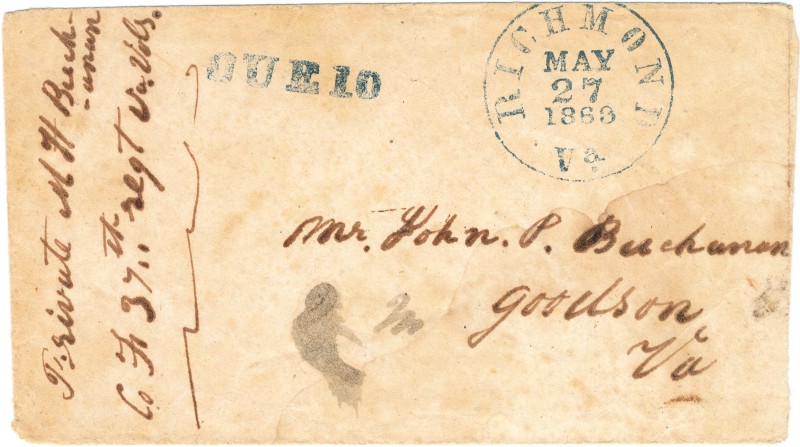 Private M H Buch-
-anan
Co F 37th regt Va. Vols.
DUE 10
RICHMOND
MAY
27
1863
Va
Mr. John. P. Buchanan
Goodson
Va